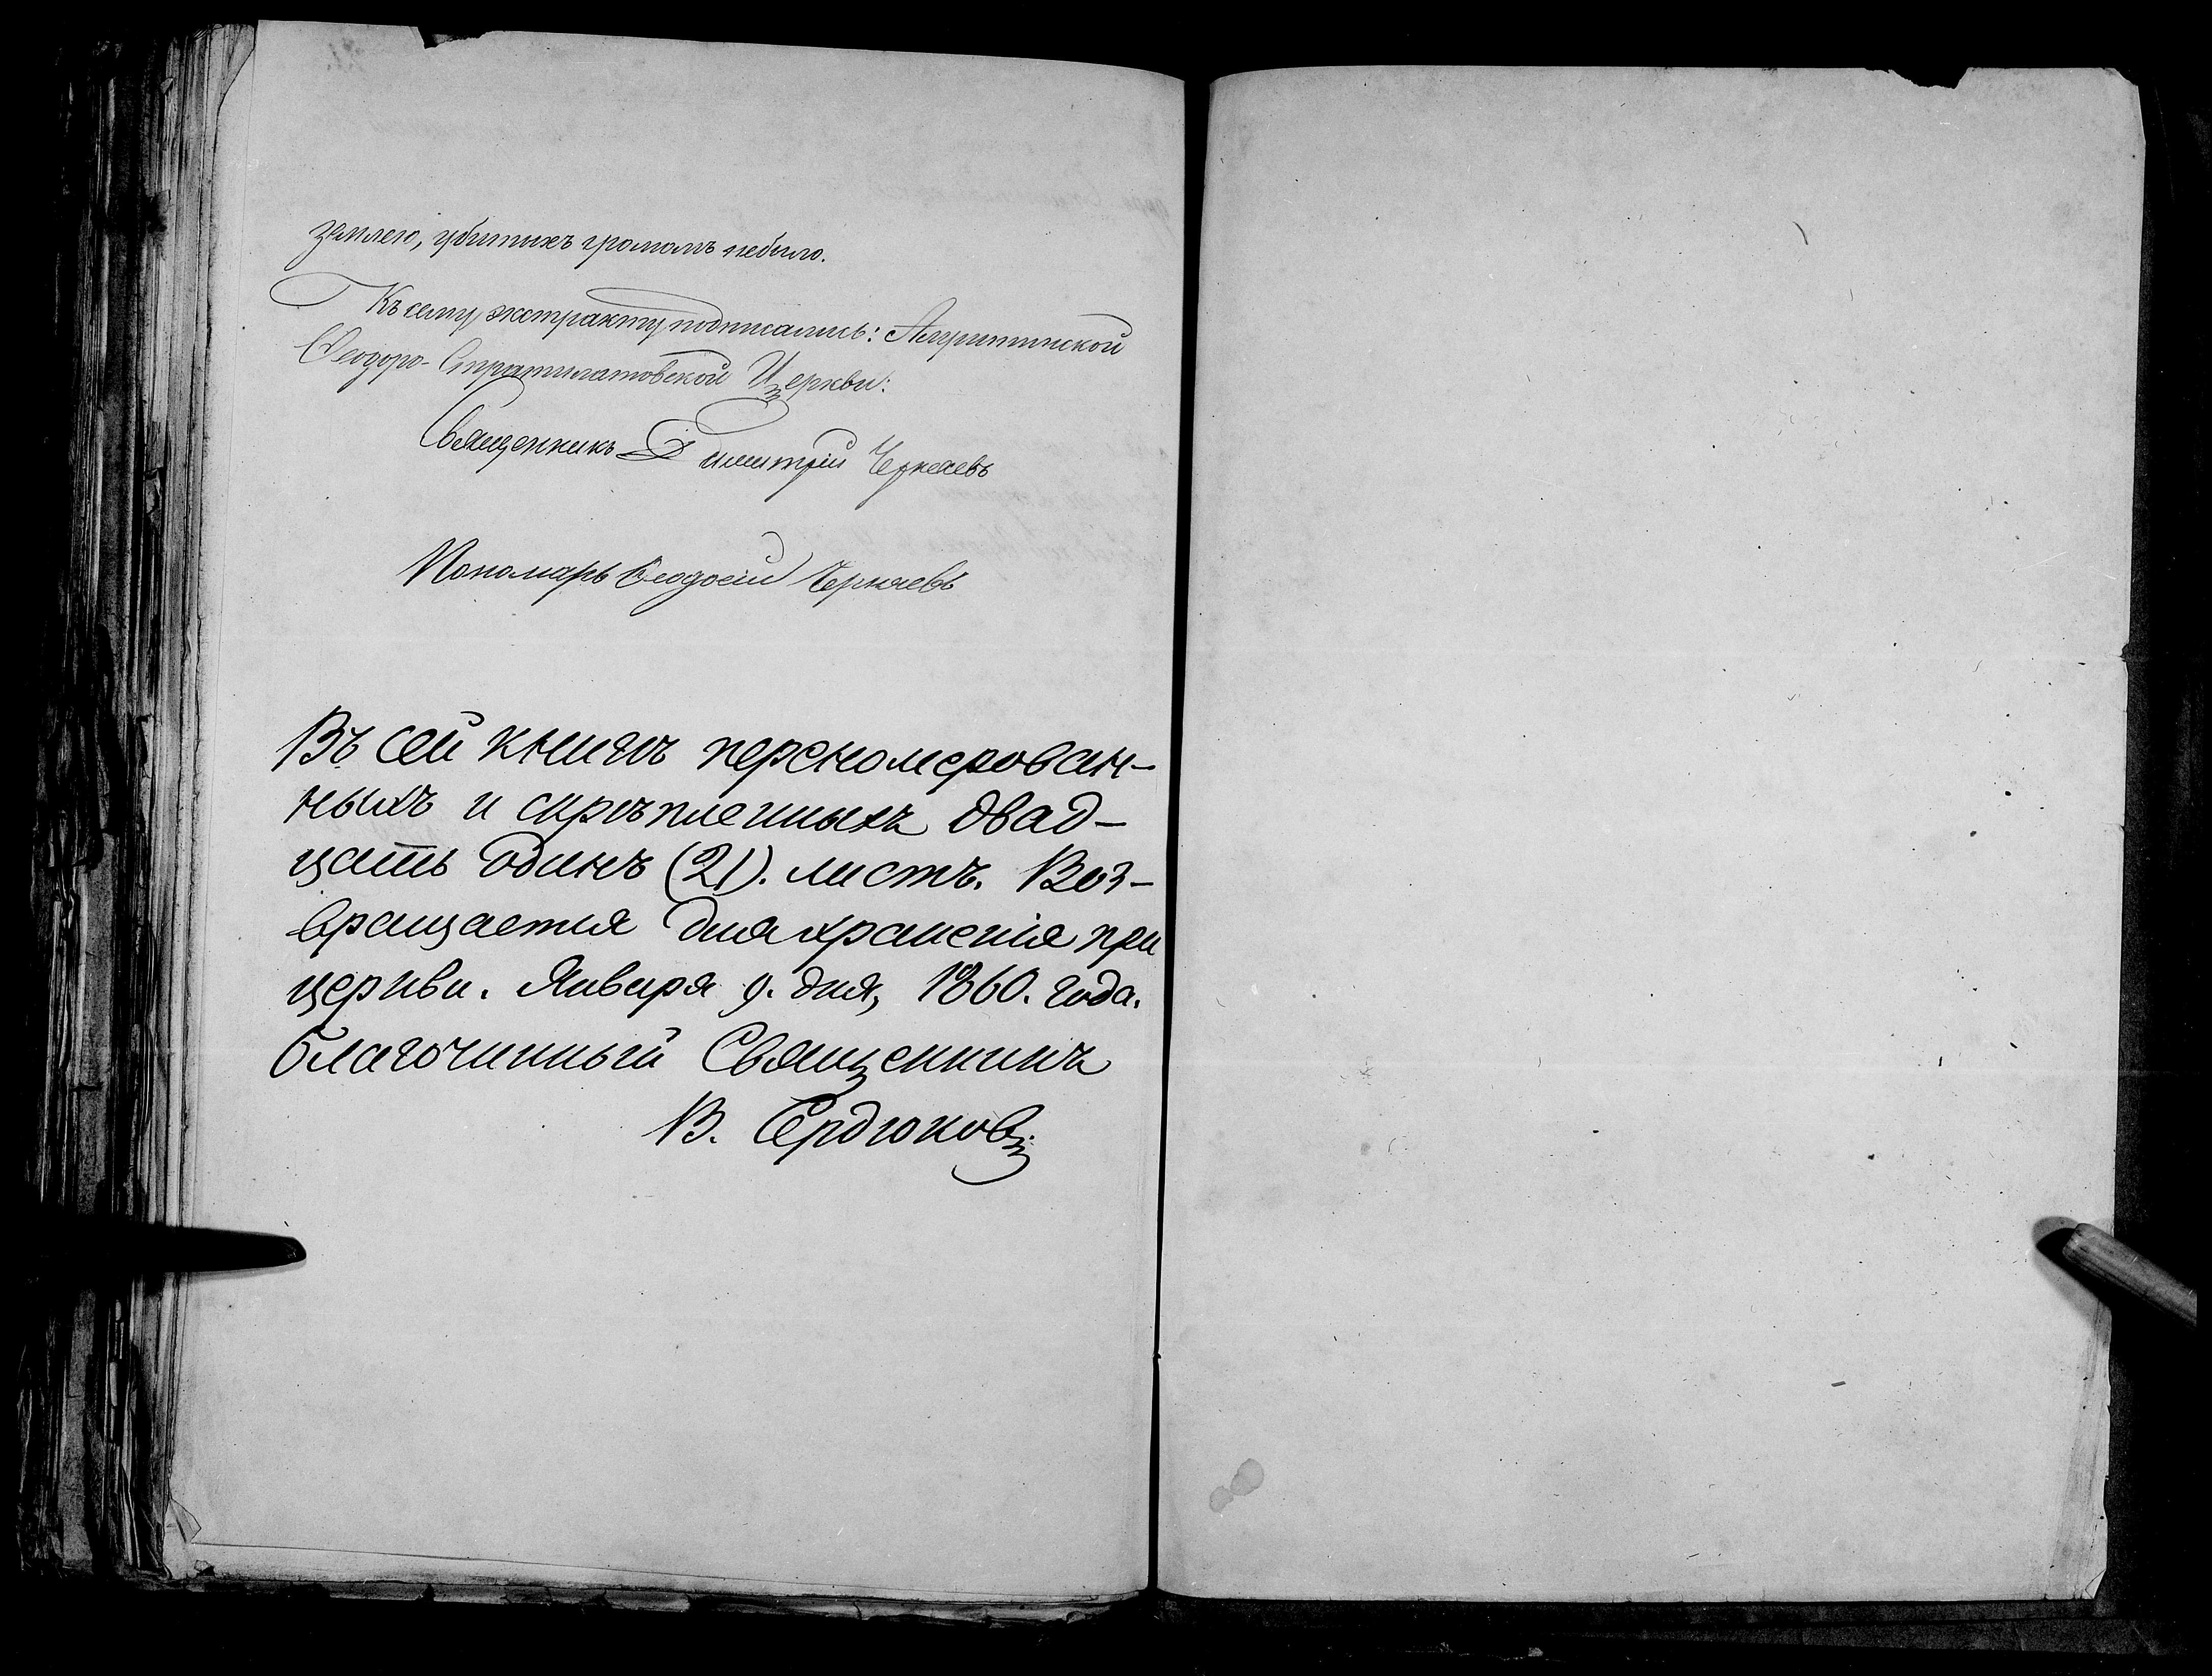 землею, убитыхъ громомъ небыло.
Къ сему экстракту подписались:
Феодоро-Стратилатовской Церкви:
Священникъ Димитрій Черняевъ
Пономарь Феодосій Черняевъ
Въ сей книгѣ переномерован-
ныхъ и скрѣпленныхъ двад-
цать одинъ (21). листъ. Воз-
вращается для храненія при
церкви. Января 9. дня, 1860. года.
Благочинный Священникъ
В. Сердюковъ.